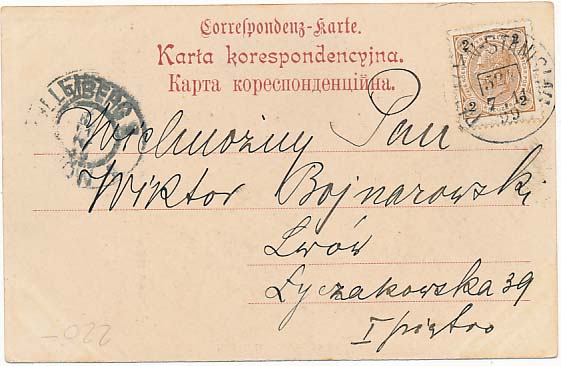 Correspondenz-Karte.
Karta korespondencyjna.
Карта кореспонденційна.
2 2
2 2
Wielmożny Pan
Wiktor Bojnarowski
Lwów
Łyczakowska 39
I piętro
220-